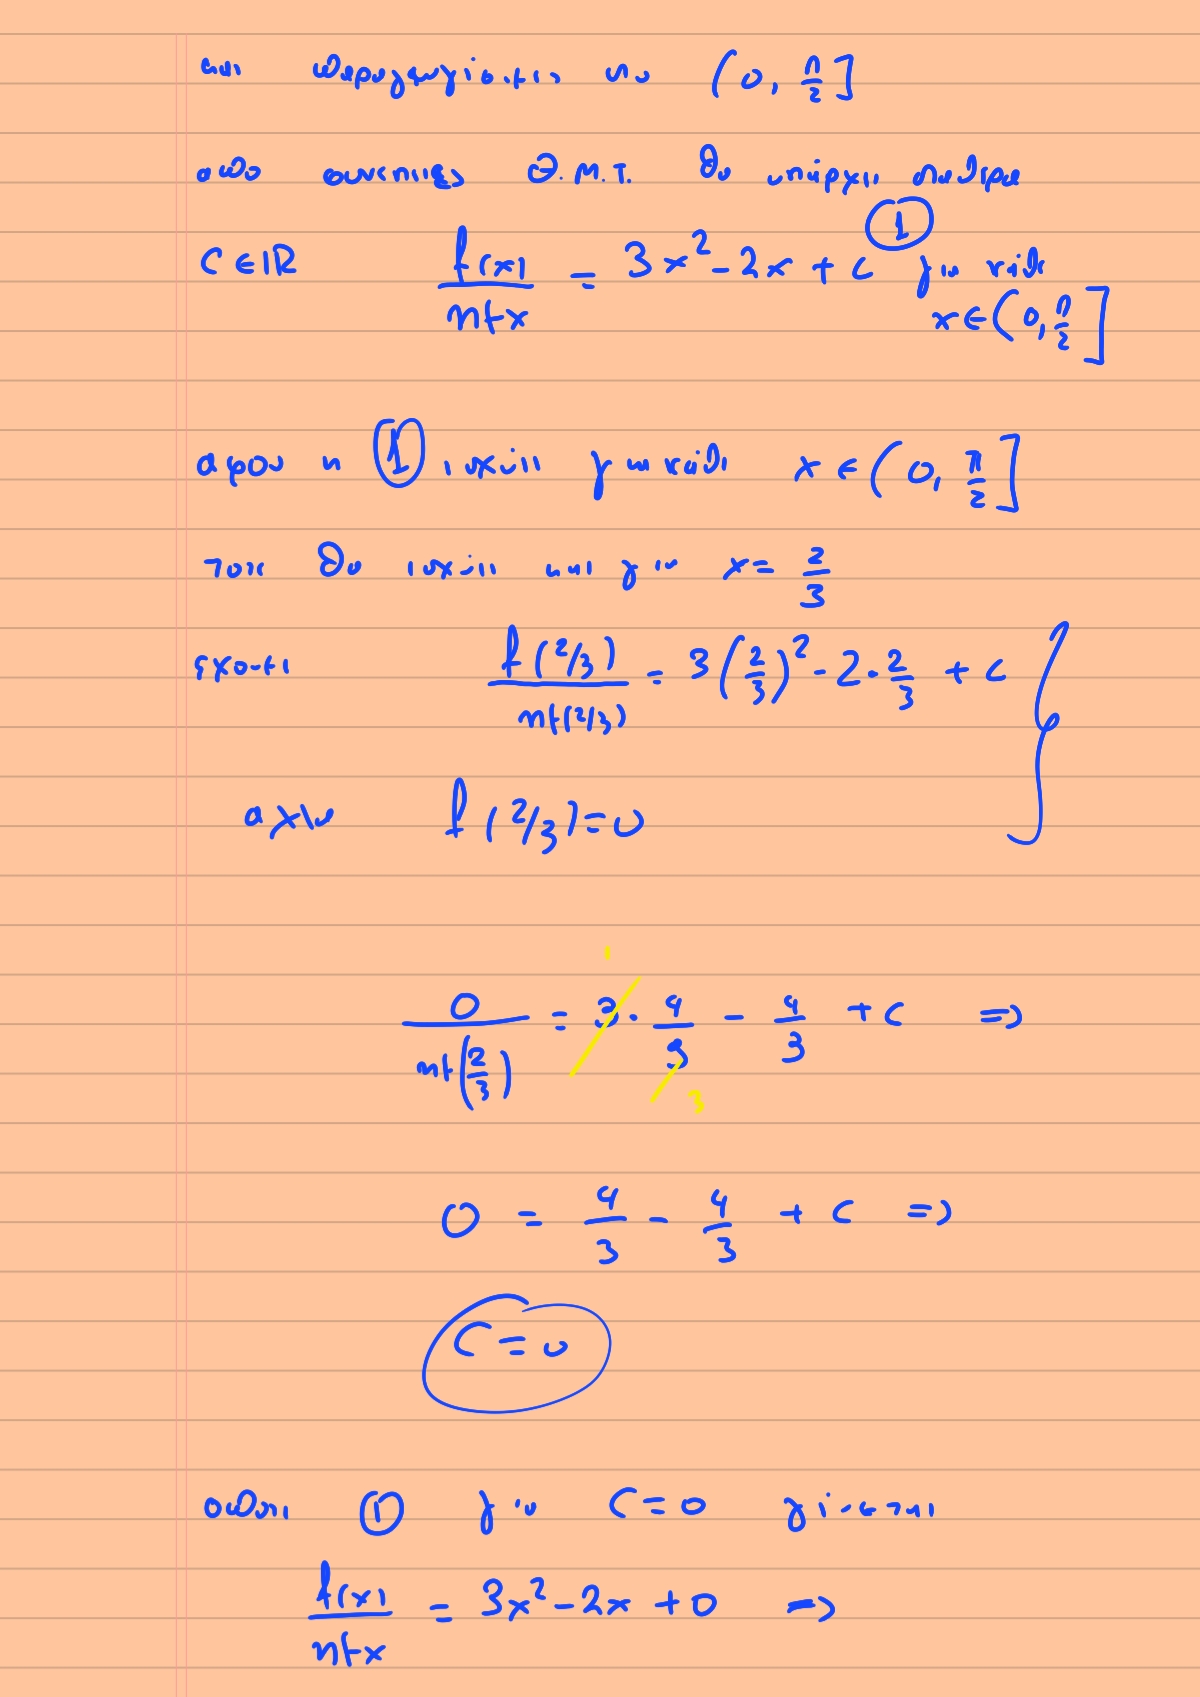 και παραγωγίσιμες στο (0, π/2]
από συνέπειες Θ.Μ.Τ. θα υπάρχει σταθερα
C ∈ ℝ f(x)/ημx = 3x² - 2x + c ① για κάθε
x ∈ (0, π/2]
αφου η ① ισχύει για κάθε x ∈ (0, π/2]
τοτε θα ισχύει και για x = 2/3
εχουμε f(2/3)/ημ(2/3) = 3(2/3)² - 2·2/3 + c
αλλα f(2/3) = 0
1
0/ημ(2/3) = 3·4/9 - 4/3 + c ⇒
3
0 = 4/3 - 4/3 + c ⇒
C = 0
οποτε ① για C = 0 γίνεται
f(x)/ημx = 3x² - 2x + 0 ⇒